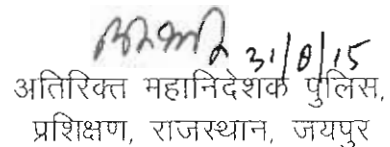 31/8/15
अतिरिक्त महानिदेशक पुलिस,
प्रशिक्षण, राजस्थान, जयपुर